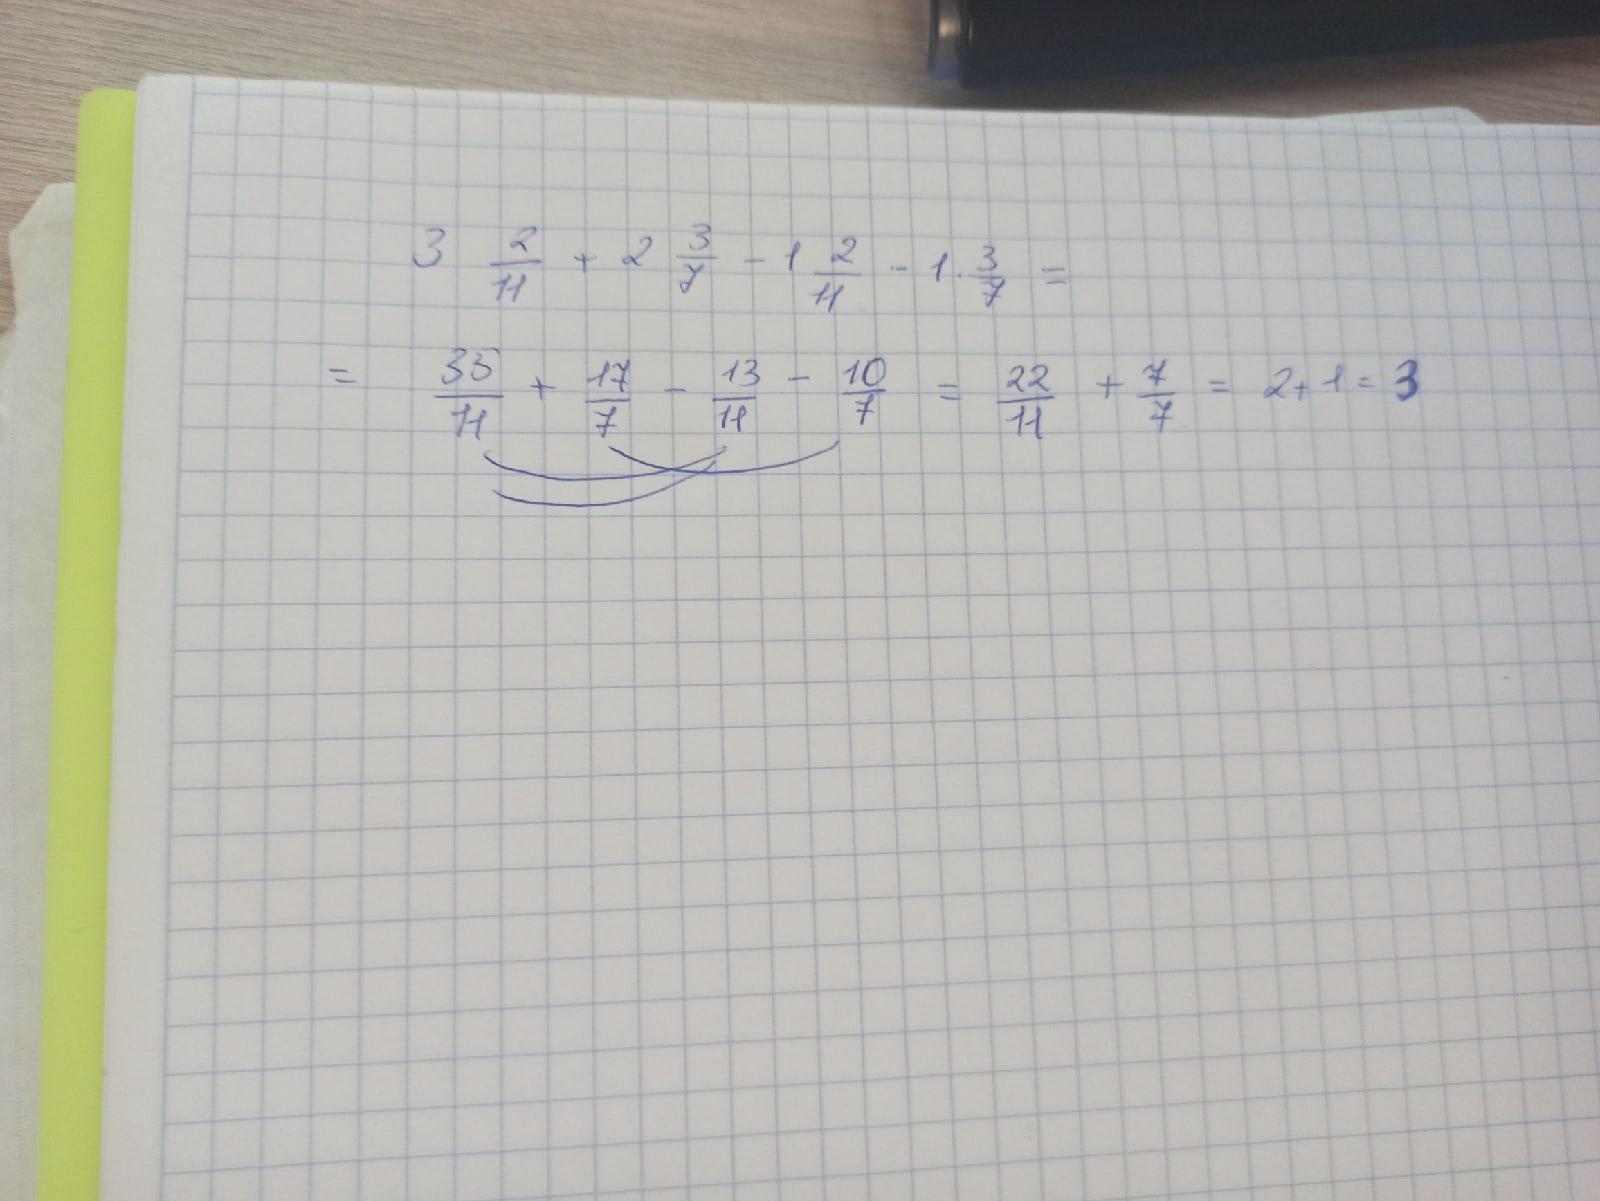 3 2/11 + 2 3/7 - 1 2/11 - 1 3/7 =
= 35/11 + 17/7 - 13/11 - 10/7 = 22/11 + 7/7 = 2 + 1 = 3